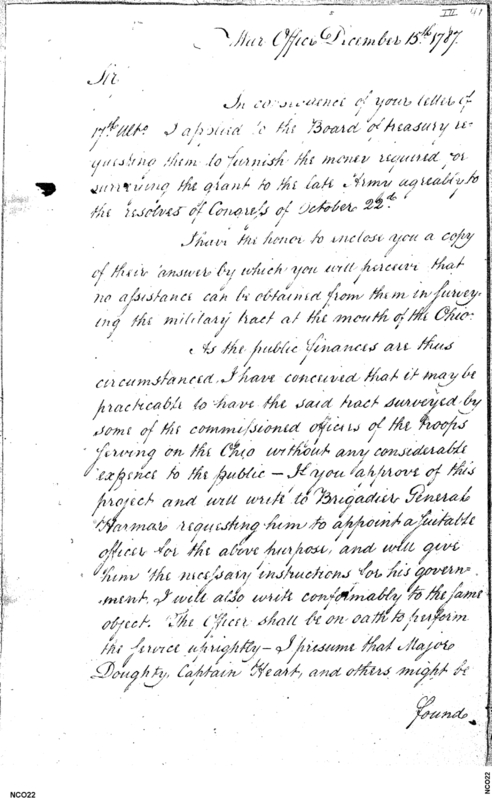 III 41
War Office December 15th. 1787.
Sir
In consequence of your letter of
17th. Ulto. I applied to the Board of treasury re-
questing them to furnish the money required for
surveying the grant to the late Army agreably to
the resolves of Congress of October 22d.
I have the honor to inclose you a copy
of their answer by which you will perceive that
no assistance can be obtained from them in Survey-
ing the military tract at the mouth of the Ohio.
As the public finances are thus
circumstanced I have conceived that it may be
practicable to have the said tract surveyed by
some of the commissioned officers of the troops
serving on the Ohio without any considerable
expence to the public — If you approve of this
project and will write to Brigadier General
Harmar requesting him to appoint a suitable
officer for the above purpose, and will give
him the necessary instructions for his govern-
ment, I will also write conformably to the same
object. The Officer shall be on oath to perform
the service uprightly — I presume that Major
Doughty, Captain Heart, and others might be
found
NCO22
NCO22